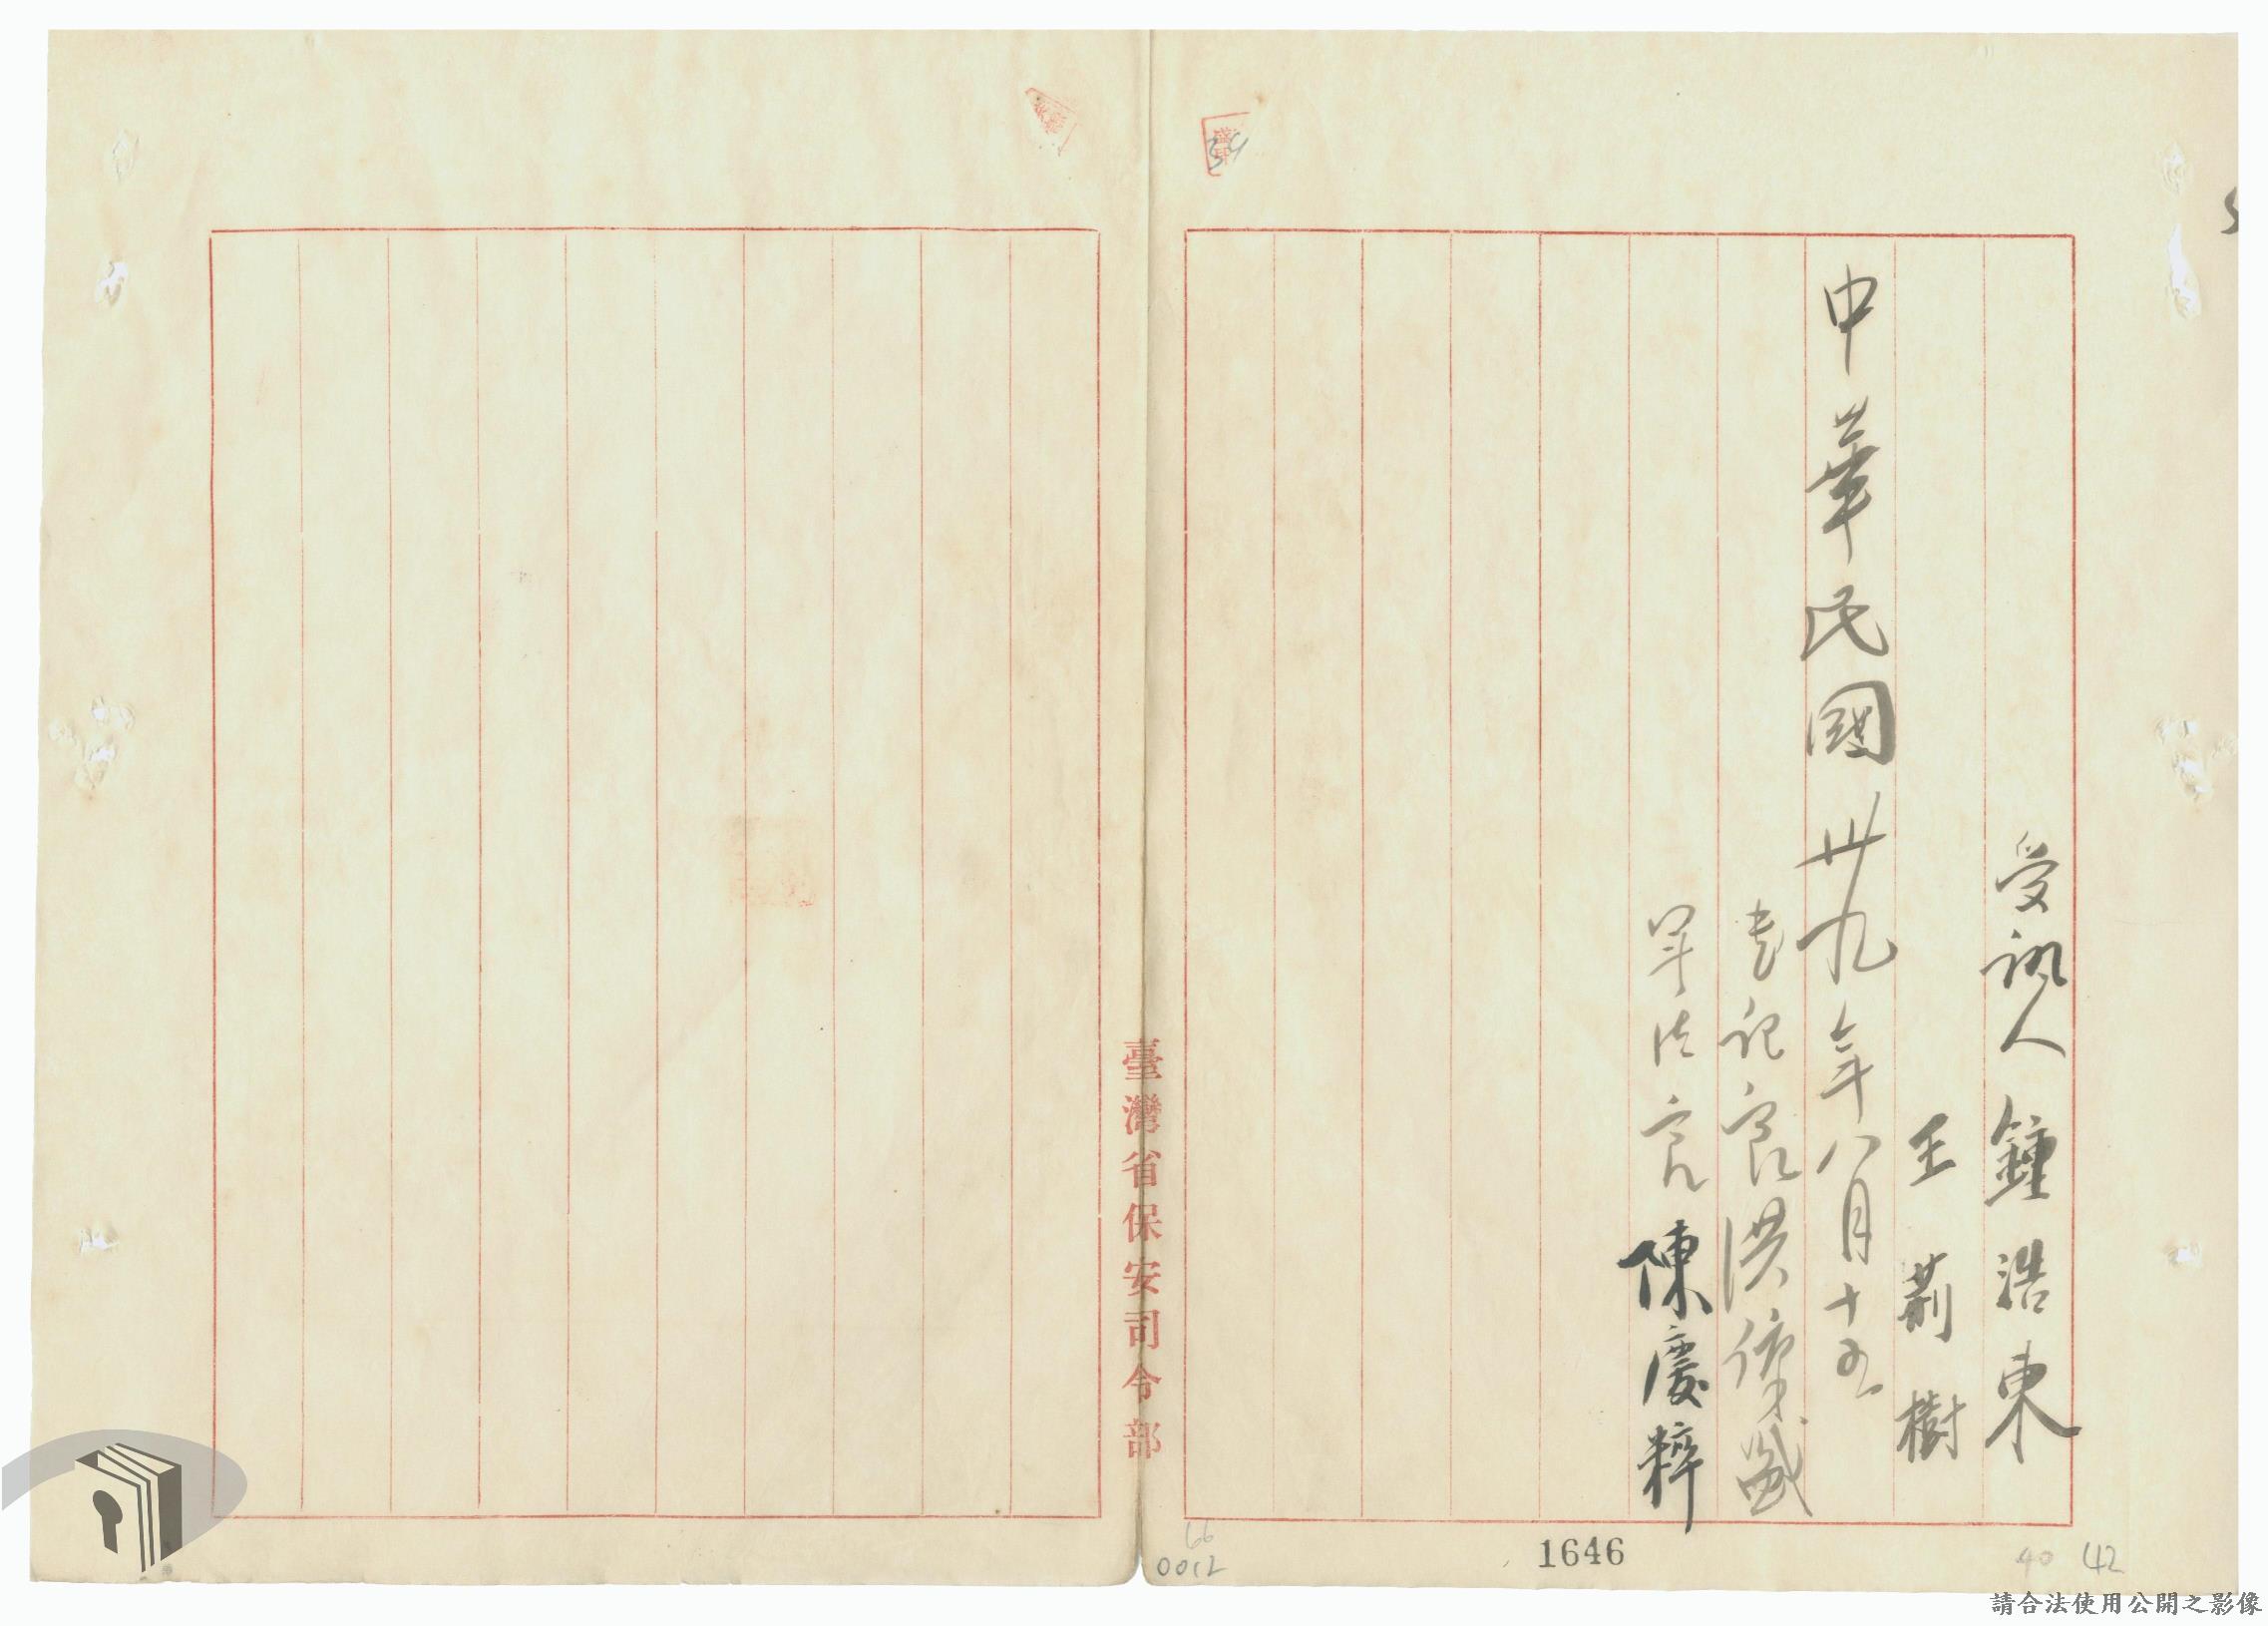 受訊人鍾浩東
王荊樹
中華民國卅九年八月十五
書記官洪
軍法官陳慶粹
臺灣省保安司令部
34
1646
66
0012
40
42
請合法使用公開之影像